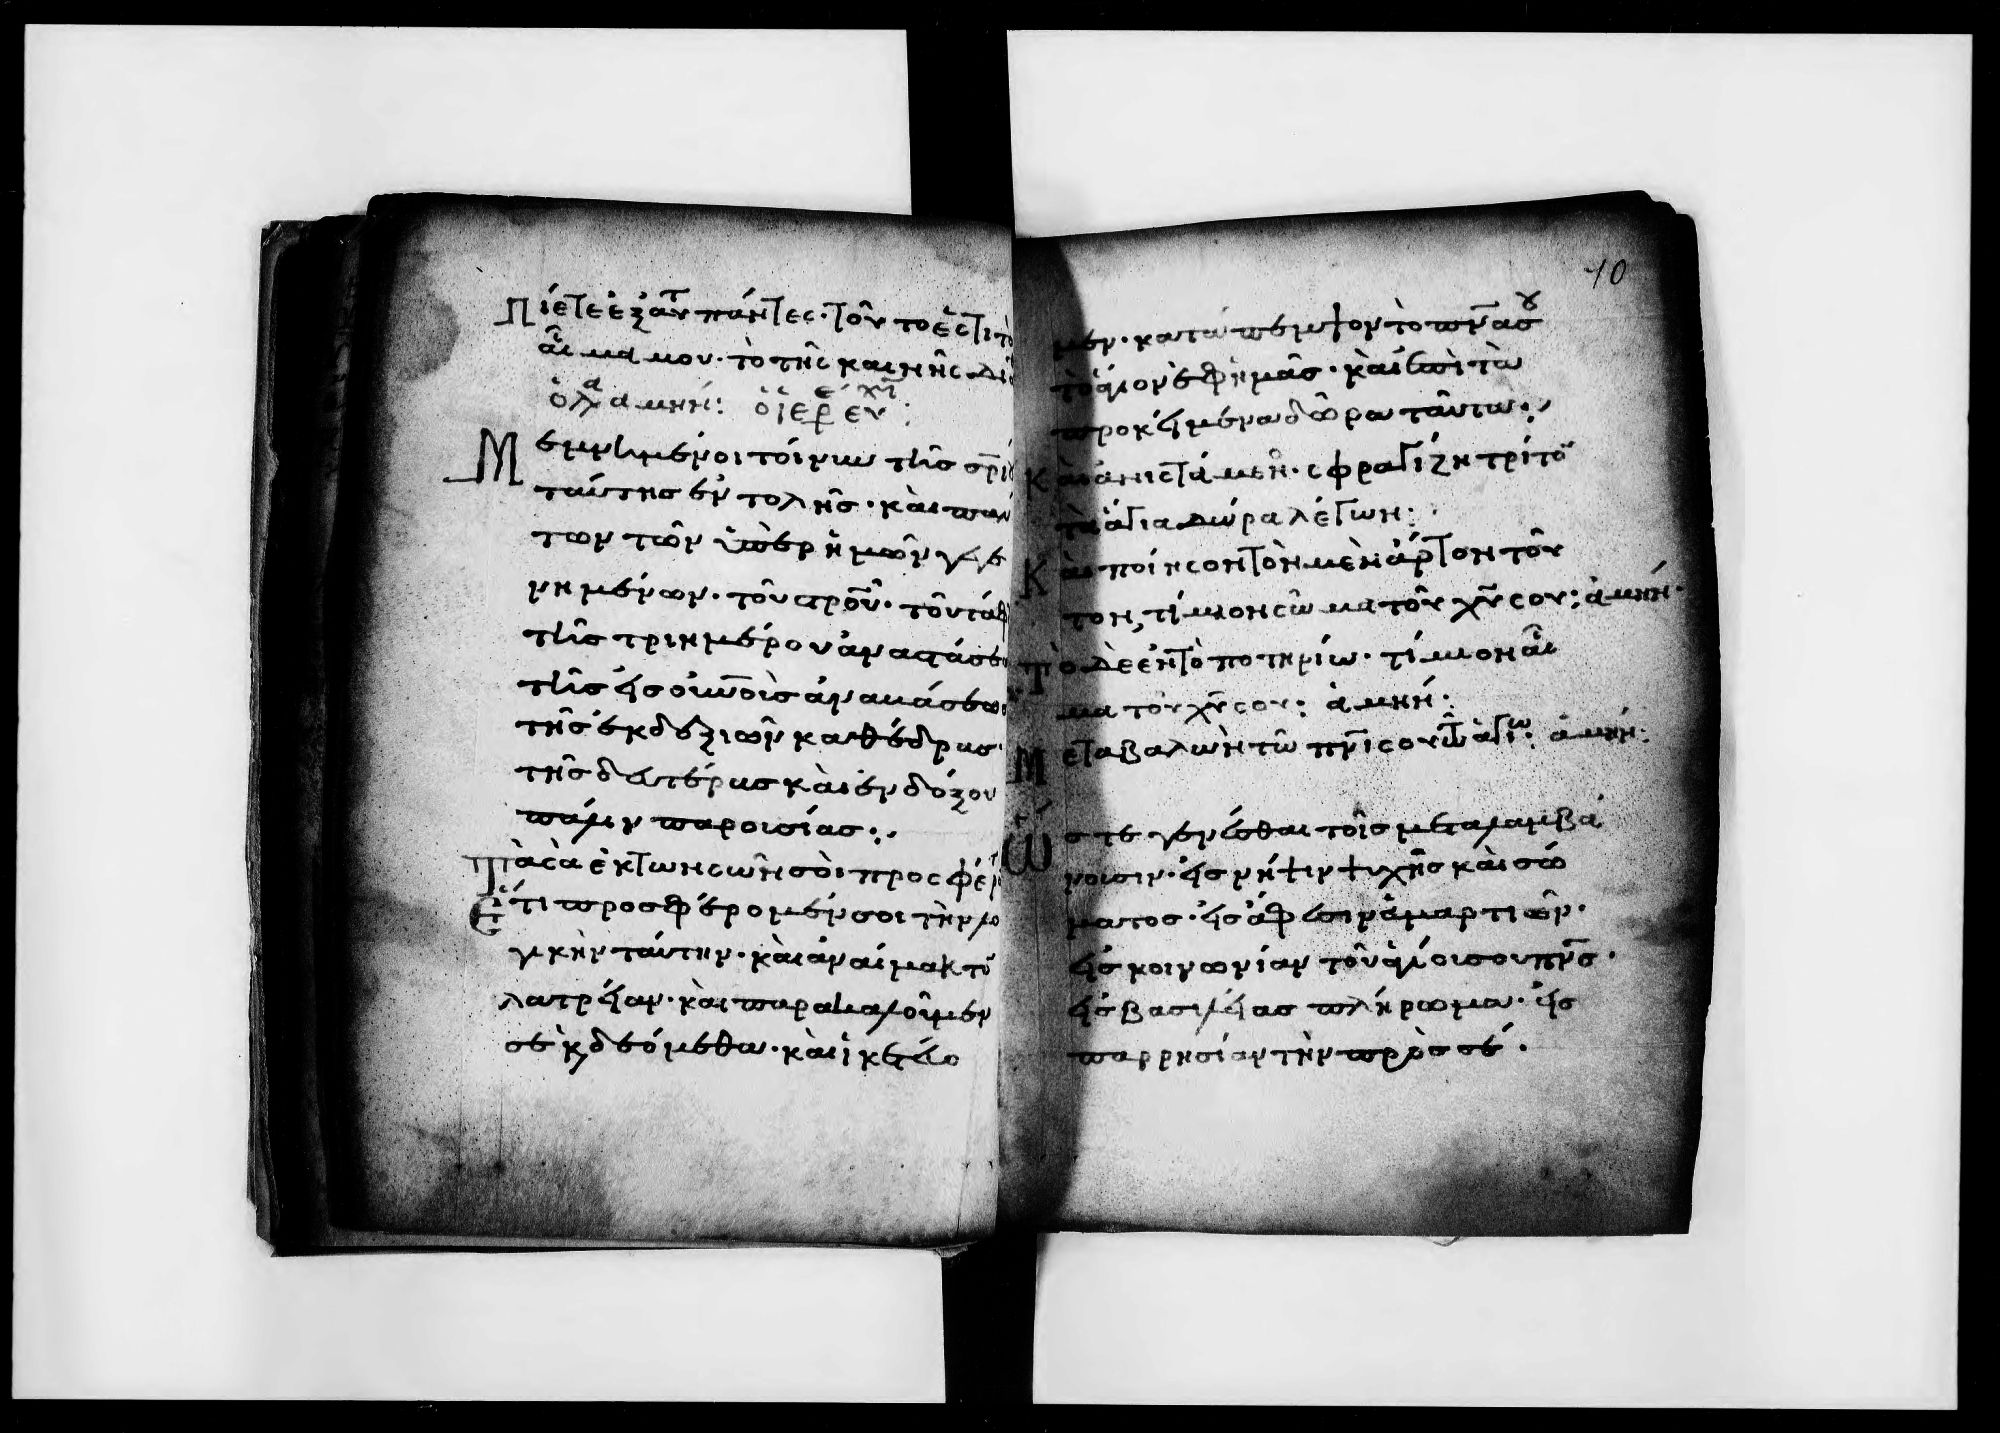 Πίετε ἐξ αὐτ πάντες· τοῦτο ἐστὶ τὸ
αἷμα μου· τὸ τῆς καινῆς δι
ὁ λα ἀμήν: ὁ ἱερ εὐχ:
Μεμνημένοι τοίνυν τῆς σρι
ταύτης ἐντολῆς· καὶ πάν
των τῶν ὑπὲρ ἡμῶν γεγε
νημένων· τοῦ στροῦ· τοῦ τάφ
τῆς τριημέρου ἀναστάσε
τῆς εἰς οὐνοὺς ἀναβάσεως
τῆς ἐκ δεξιῶν καθέδρας·
τῆς δευτέρας καὶ ἐνδόξου
πάλιν παρουσίας:
Τὰ σὰ ἐκ τῶν σῶν σοὶ προσφέρ
Ἔτι προσφέρομέν σοι τὴν λο
γικὴν ταύτην· καὶ ἀναίμακτον
λατρείαν· καὶ παρακαλοῦμέν
σε κ δεόμεθα· καὶ ἱκετεύο
10
μεν· κατάπεμψον τὸ πνᾶ σου
τὸ ἅγιον ἐφ ἡμᾶς· καὶ ἐπὶ τὰ
προκείμενα δῶρα ταῦτα:
Καὶ ἀνιστάμεν· σφραγίζη τρίτον
τὰ ἅγια δώρα λέγων:
Καὶ ποίησον τὸν μὲν ἄρτον τοῦ
τον, τίμιον σῶμα τοῦ χυ σου: ἀμήν·
Τὸ δὲ ἐν τῷ ποτηρίω· τίμιον αἷ
μα τοῦ χυ σου: ἀμήν:
Μεταβαλὼν τῶ πνι σου τῶ ἁγίω: ἀμήν:
Ὥστε γενέσθαι τοῖς μεταλαμβά
νουσιν· εἰς νῆψιν ψυχῆς καὶ σώ
ματος· εἰς ἄφεσιν ἁμαρτιῶν·
εἰς κοινωνίαν τοῦ ἁγίου σου πνς·
εἰς βασιλείας πλήρωμα· εἰς
παρρησίαν τὴν πρὸς σέ·